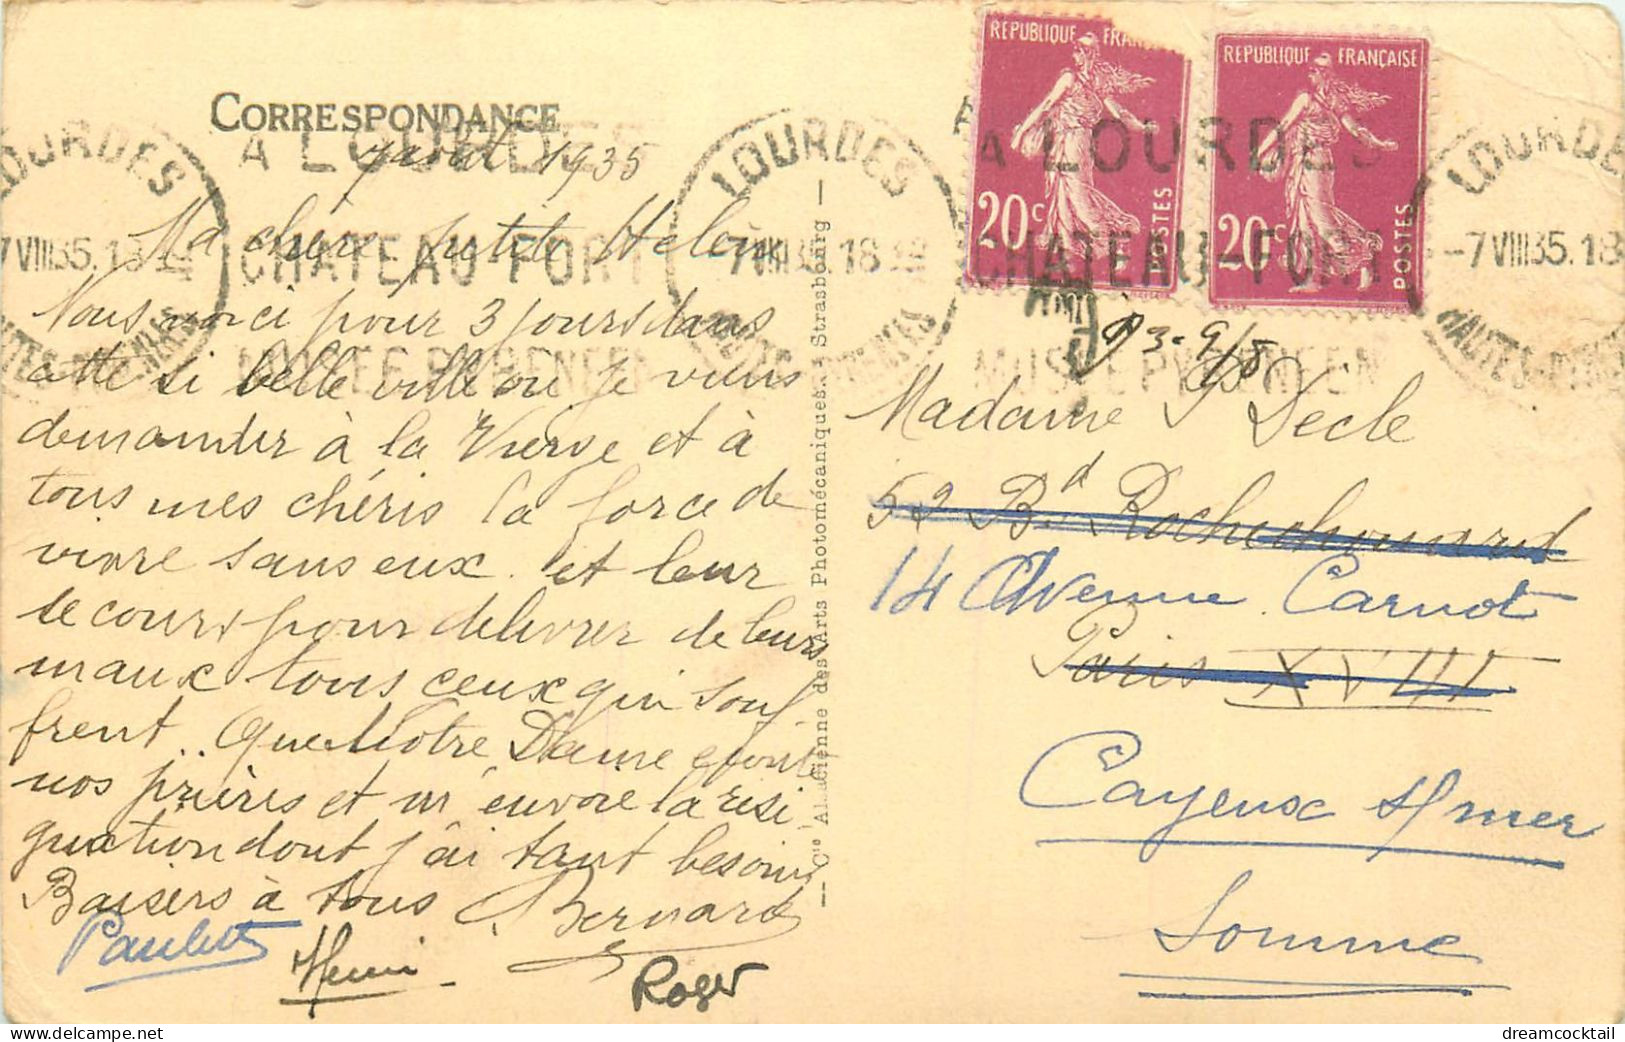 CORRESPONDANCE
7 août 1935
Ma chère petite Hélène
Nous voici pour 3 jours dans
cette si belle ville où je viens
demander à la Vierge et à
tous mes chéris la force de
vivre sans eux. et leur
secours pour délivrer de leurs
maux tous ceux qui souf
frent.. Que Notre Dame écoute
nos prières et m'envoie la rési
gnation dont j'ai tant besoin
Baisers à tous Bernard
Paulette
Henri
Roger
Cie Alsacienne des Arts Photomécaniques. Strasbourg
RÉPUBLIQUE FRANÇAISE
20c
POSTES
RÉPUBLIQUE FRANÇAISE
20c
POSTES
LOURDES
7 VIII 35. 18
HAUTES-PYRÉNÉES
A LOURDES
CHATEAU-FORT
MUSÉE PYRÉNÉEN
LOURDES
-7 VIII 35. 18
HAUTES-PYRÉNÉES
A LOURDES
CHATEAU-FORT
MUSÉE PYRÉNÉEN
LOURDES
-7 VIII 35. 18
HAUTES-PYRÉNÉES
Madame Dècle
52 Bd Rochechouard
14 Avenue Carnot
Paris XVIII
Cayeux s/mer
Somme
dreamcocktail